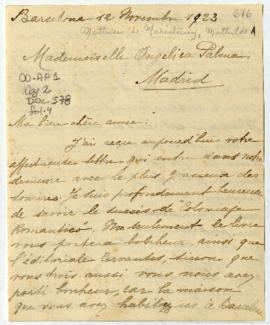 Barcelona 12 Novembre 1923
616
Matthieu de Marenteney, Mathilde A
Mademoiselle Angélica Palma
Madrid
OO-AP1
Caj 2
Doc-578
fol. 4
Ma bien chère amie:
J'ai reçu aujourd'hui votre
affectueuse lettre qui entre dans notre
demeure avec le plus gracieux des
sourires. Je suis profondement heureuse
de savoir le succès de "Coloniaje
Romantico". Seulement le livre
vous portera bonheur, ainsi que
l'éditoriale Cervantes, sinon que
vous trois aussi vous nous avez
porté bonheur, car la maison
que vous avez habitée ici à Barcelone